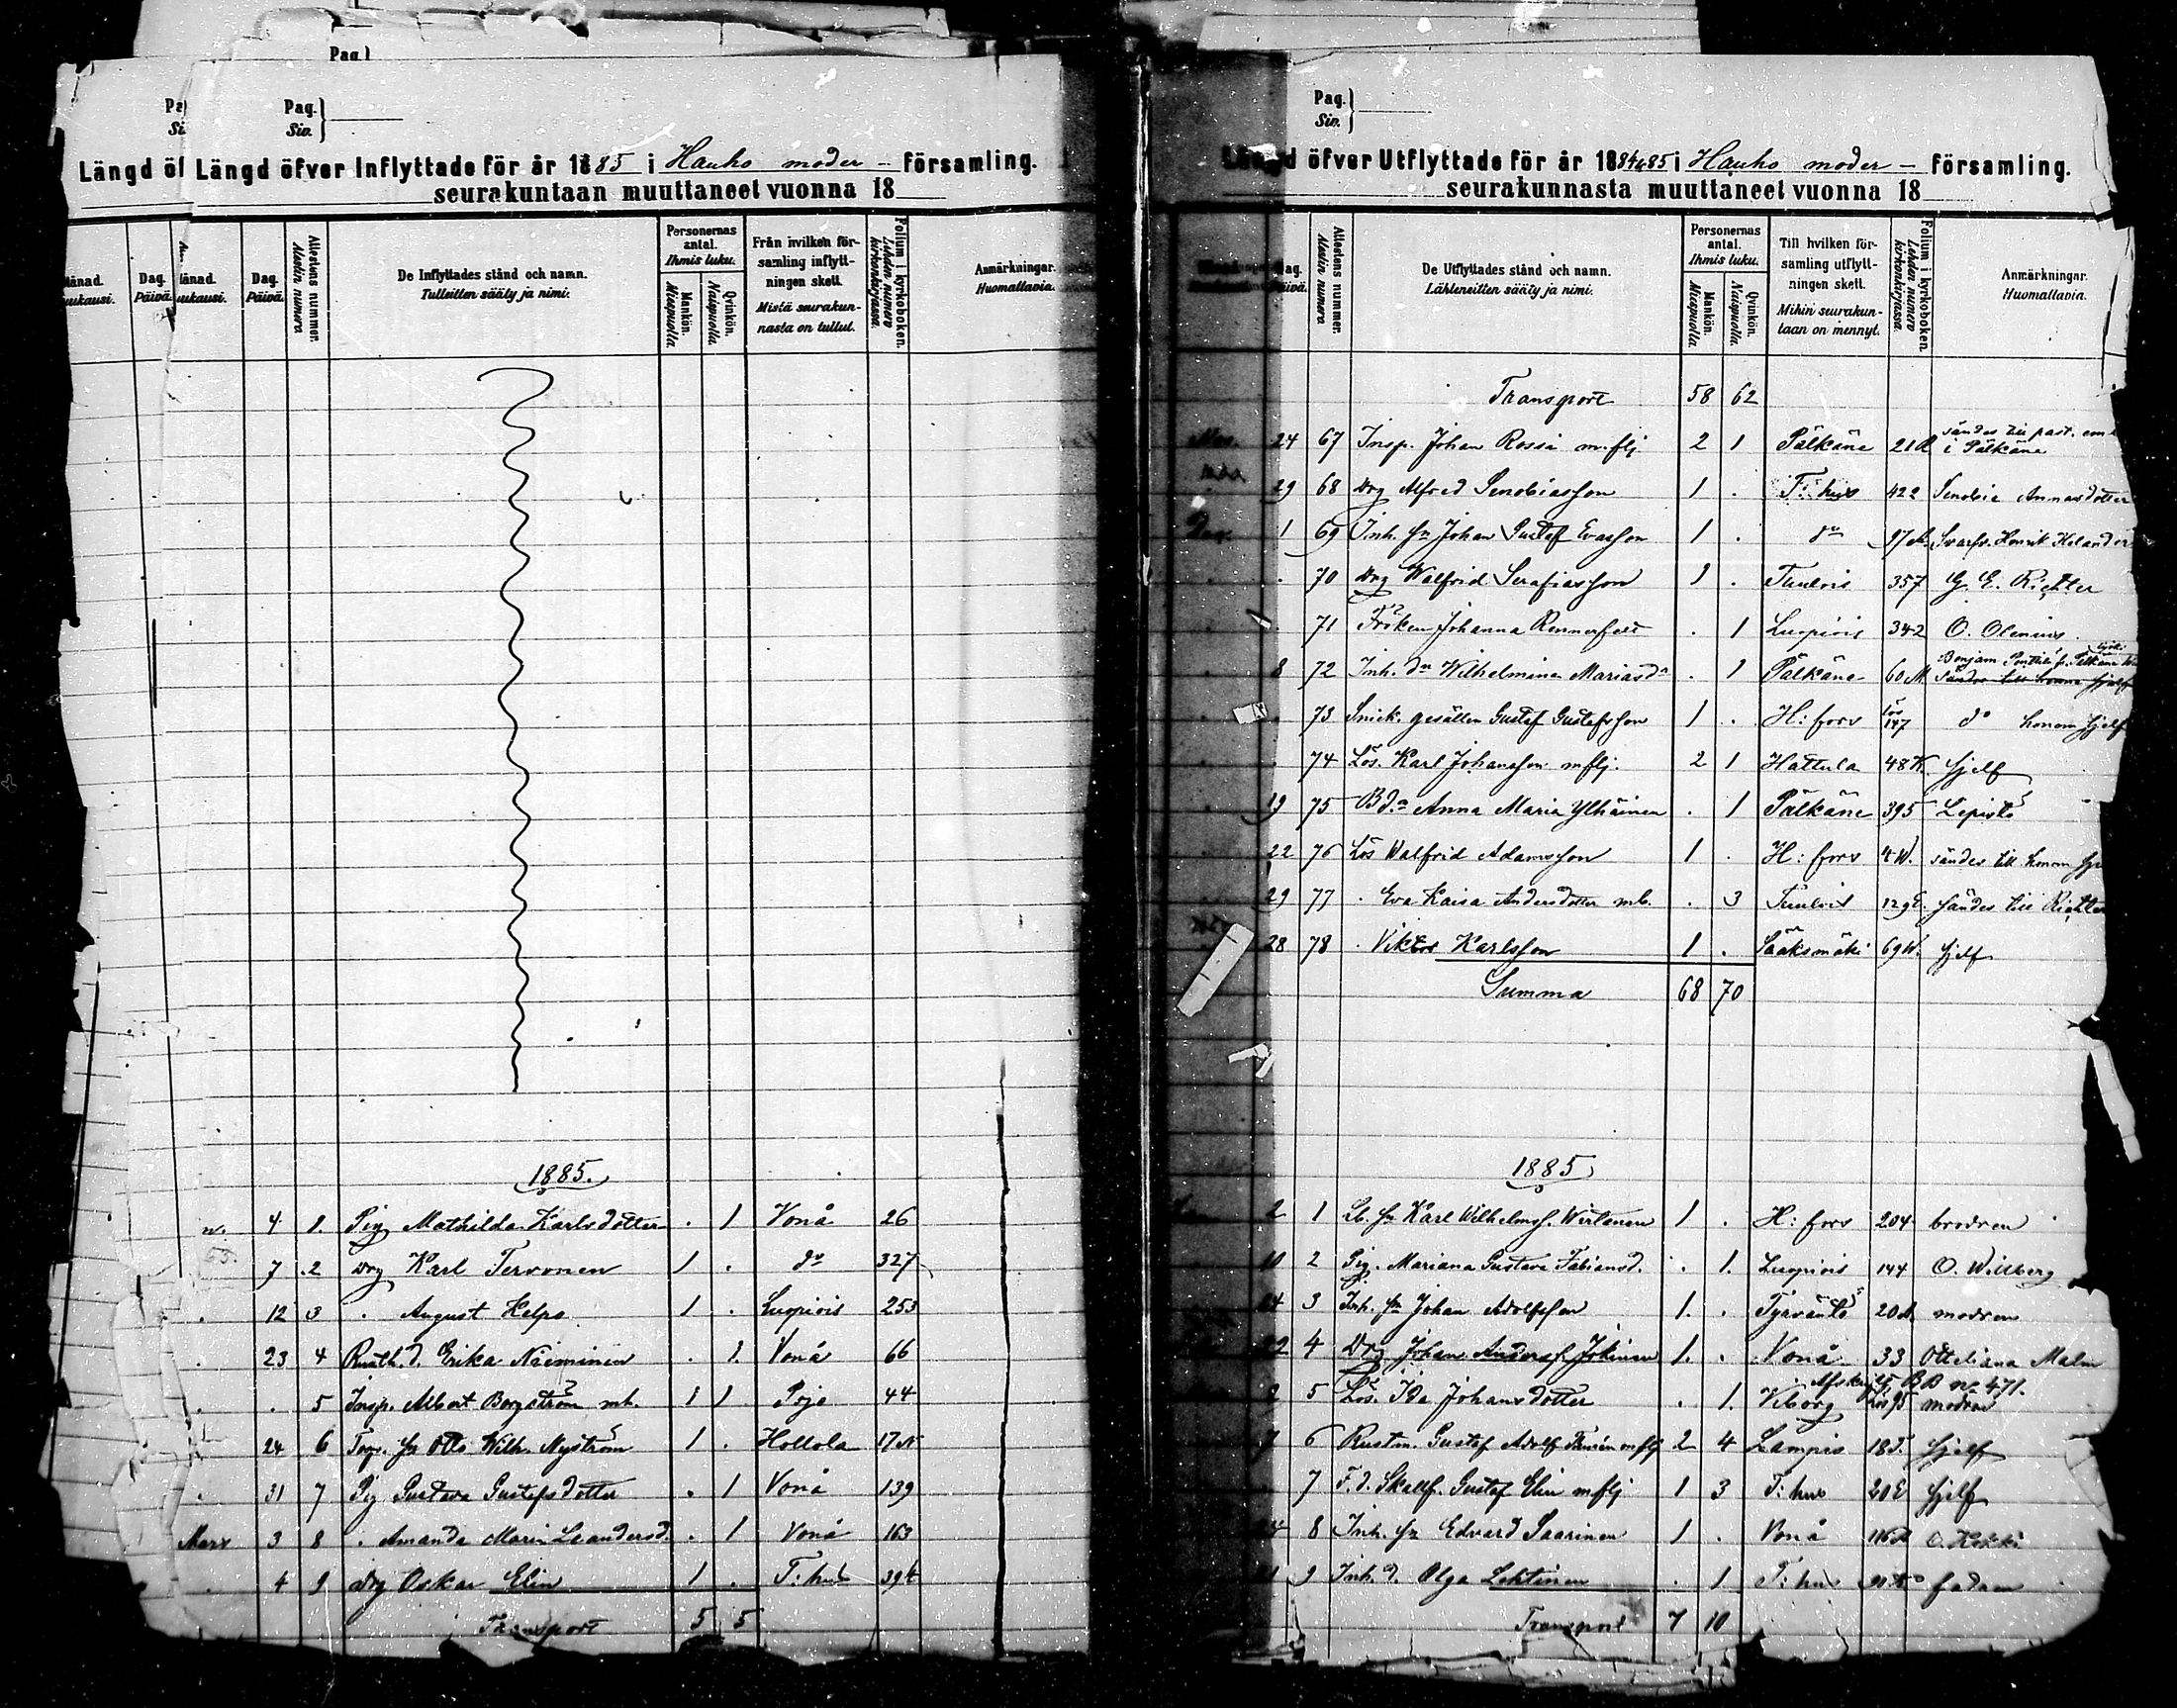 Pag.
Pag.
Siv.
Längd öf Längd öfver Inflyttade för år 1885 i Hauho moder- församling.
seurakuntaan muuttaneet vuonna 18
Månad. Kuukausi.
Dag. Päivä.
Attestens nummer. Alestin numero
De Inflyttades stånd och namn. Tulleitten sääty ja nimi.
Personernas antal. Ihmis luku.
Mankön. Miespuolia.
Qvinkön. Naispuolia.
Från hvilken församling inflyttningen skett. Mistä seurakunnasta on tullut.
Folium i kyrkoboken. Lehden numero kirkonkirjassa.
Anmärkningar. Huomattavia.
1885.
4 1. Pig Mathilda Karlsdotter . 1 Vonå 26
7 2 Drg Karl Tervonen 1 . do 327
. 12 3 . August Helps 1 . Luopiois 253
. 23 4 Rusth. d. Erika Näiminen . 1. Vonå 66
. . 5 Insp. Albert Bergström mh. 1 1 Pojo 44
24 6 Torp. sn Otto Wilh. Nyström 1 . Hollola 17
. 31 7 Pig Gustava Gustafsdotter . 1 Vonå 139
Mars 3 8 . Amanda Maria Leandersd. . 1 Vonå 163
. 4 9 Drg Oskar Elin 1 . T:hus 394
Transport 5 5
Pag.
Siv.
Längd öfver Utflyttade för år 1884 o 85 i Hauho moder- församling.
seurakunnasta muuttaneet vuonna 18
Dag. Päivä.
Attestens nummer. Alestin numero
De Utflyttades stånd och namn. Lähteneitten sääty ja nimi.
Personernas antal. Ihmis luku.
Mankön. Miespuolia.
Qvinkön. Naispuolia.
Till hvilken församling utflyttningen skett. Mihin seurakuntaan on mennyt.
Folium i kyrkoboken. Lehden numero kirkonkirjassa.
Anmärkningar. Huomattavia.
Transport 58 62
Nov. 24 67 Insp. Johan Rossi m. flj. 2 1 Pälkäne 21 sändes till past. em. i Pälkäne
29 68 Drg Alfred Senobiasson 1 . T:hus 422 Senobia Annasdotter
Dec. 1 69 Inh. sn Johan Gustaf Evasson 1 . do 97 Svarfv. Henrik Helander
. . 70 Drg Walfrid Serafiasson 1 . Tuulois 357 G. E. Richter
. 71 Fröken Johanna Rennerfelt . 1 Luopiois 342 O. Olenius.
. 8 72 Inh. dr Wilhelmina Mariasdr . 1 Pälkäne 60 M. Benjam. Pälkäne sändes till henne sjelf
. 73 Snick. gesällen Gustaf Gustafsson 1 . H:fors lös 147 do honom sjelf
. 74 Lös. Karl Johansson m flj. 2 1 Hattula 48 K. sjelf
. 19 75 Bdr Anna Maria Ylhäinen . 1 Pälkäne 395 Lepistö
22 76 Lös Walfrid Adamsson 1 . H:fors 4 W. sändes till honom
. 29 77 . Eva Kaisa Andersdotter mb. . 3 Tuulois 129 E. sändes till Richter
28 78 . Viktor Karlsson 1 . Sääksmäki 69 W. sjelf
Summa 68 70
1885
2 1 Lb. sn Karl Wilhelmss. Wirtanen 1 . H:fors 204 brodren
10 2 Pig. Mariana Gustava Fabiansd. . 1. Luopiois 144 O. Willberg
24 3 Inh. sn Johan Adolfsson 1. . Tyrväntö 20 modren
22 4 Drg Johan Anderss. Jokinen 1. . Vonå 33 Otteliana Malm
2 5 Lös. Ida Johansdotter . 1. Viborg Lös 95 modren Afskrift BB no 471.
7 6 Rustm. Gustaf Adolf m flj 2 4 Lampis 18 T. sjelf
7 F. d. Skallf. Gustaf Elin m flj 1 3 T:hus 20 E sjelf
24 8 Inh. sn Edvard Saarinen 1 . Vonå 116 O. Kokki
9 Inh. d. Olga Lehtinen . 1 T:hus fadren
Transport 7 10